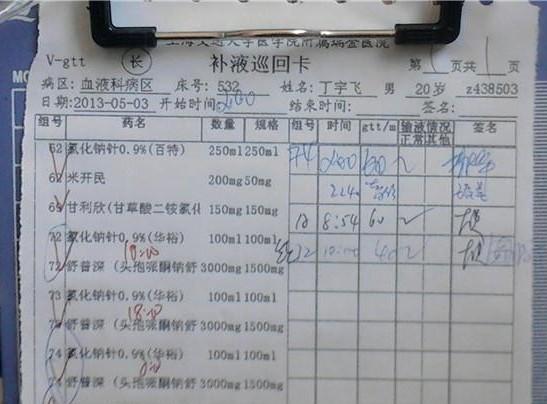 上海交通大学医学院附属瑞金医院
V-gtt 长 补液巡回卡 第 页共 页
病区: 血液科病区 床号: 532 姓名: 丁宇飞 男 20岁 z438503
日期:2013-05-03 开始时间: 结束时间: 签名:
组号 药名 数量 规格 组号 时间 gtt/m 输液情况 正常 其他 签名
62 氯化钠针0.9%(百特) 250ml 250ml 74
62 米开民 200mg 50mg
65 甘利欣(甘草酸二铵氯化 150mg 150mg 8:54 60
72 氯化钠针0.9%(华裕) 100ml 100ml 72 40
72 舒普深 (头孢哌酮钠舒 3000mg 1500mg
73 氯化钠针0.9%(华裕) 100ml 100ml
73 舒普深 (头孢哌酮钠舒 3000mg 1500mg
74 氯化钠针0.9%(华裕) 100ml 100ml
74 舒普深 (头孢哌酮钠舒 3000mg 1500mg